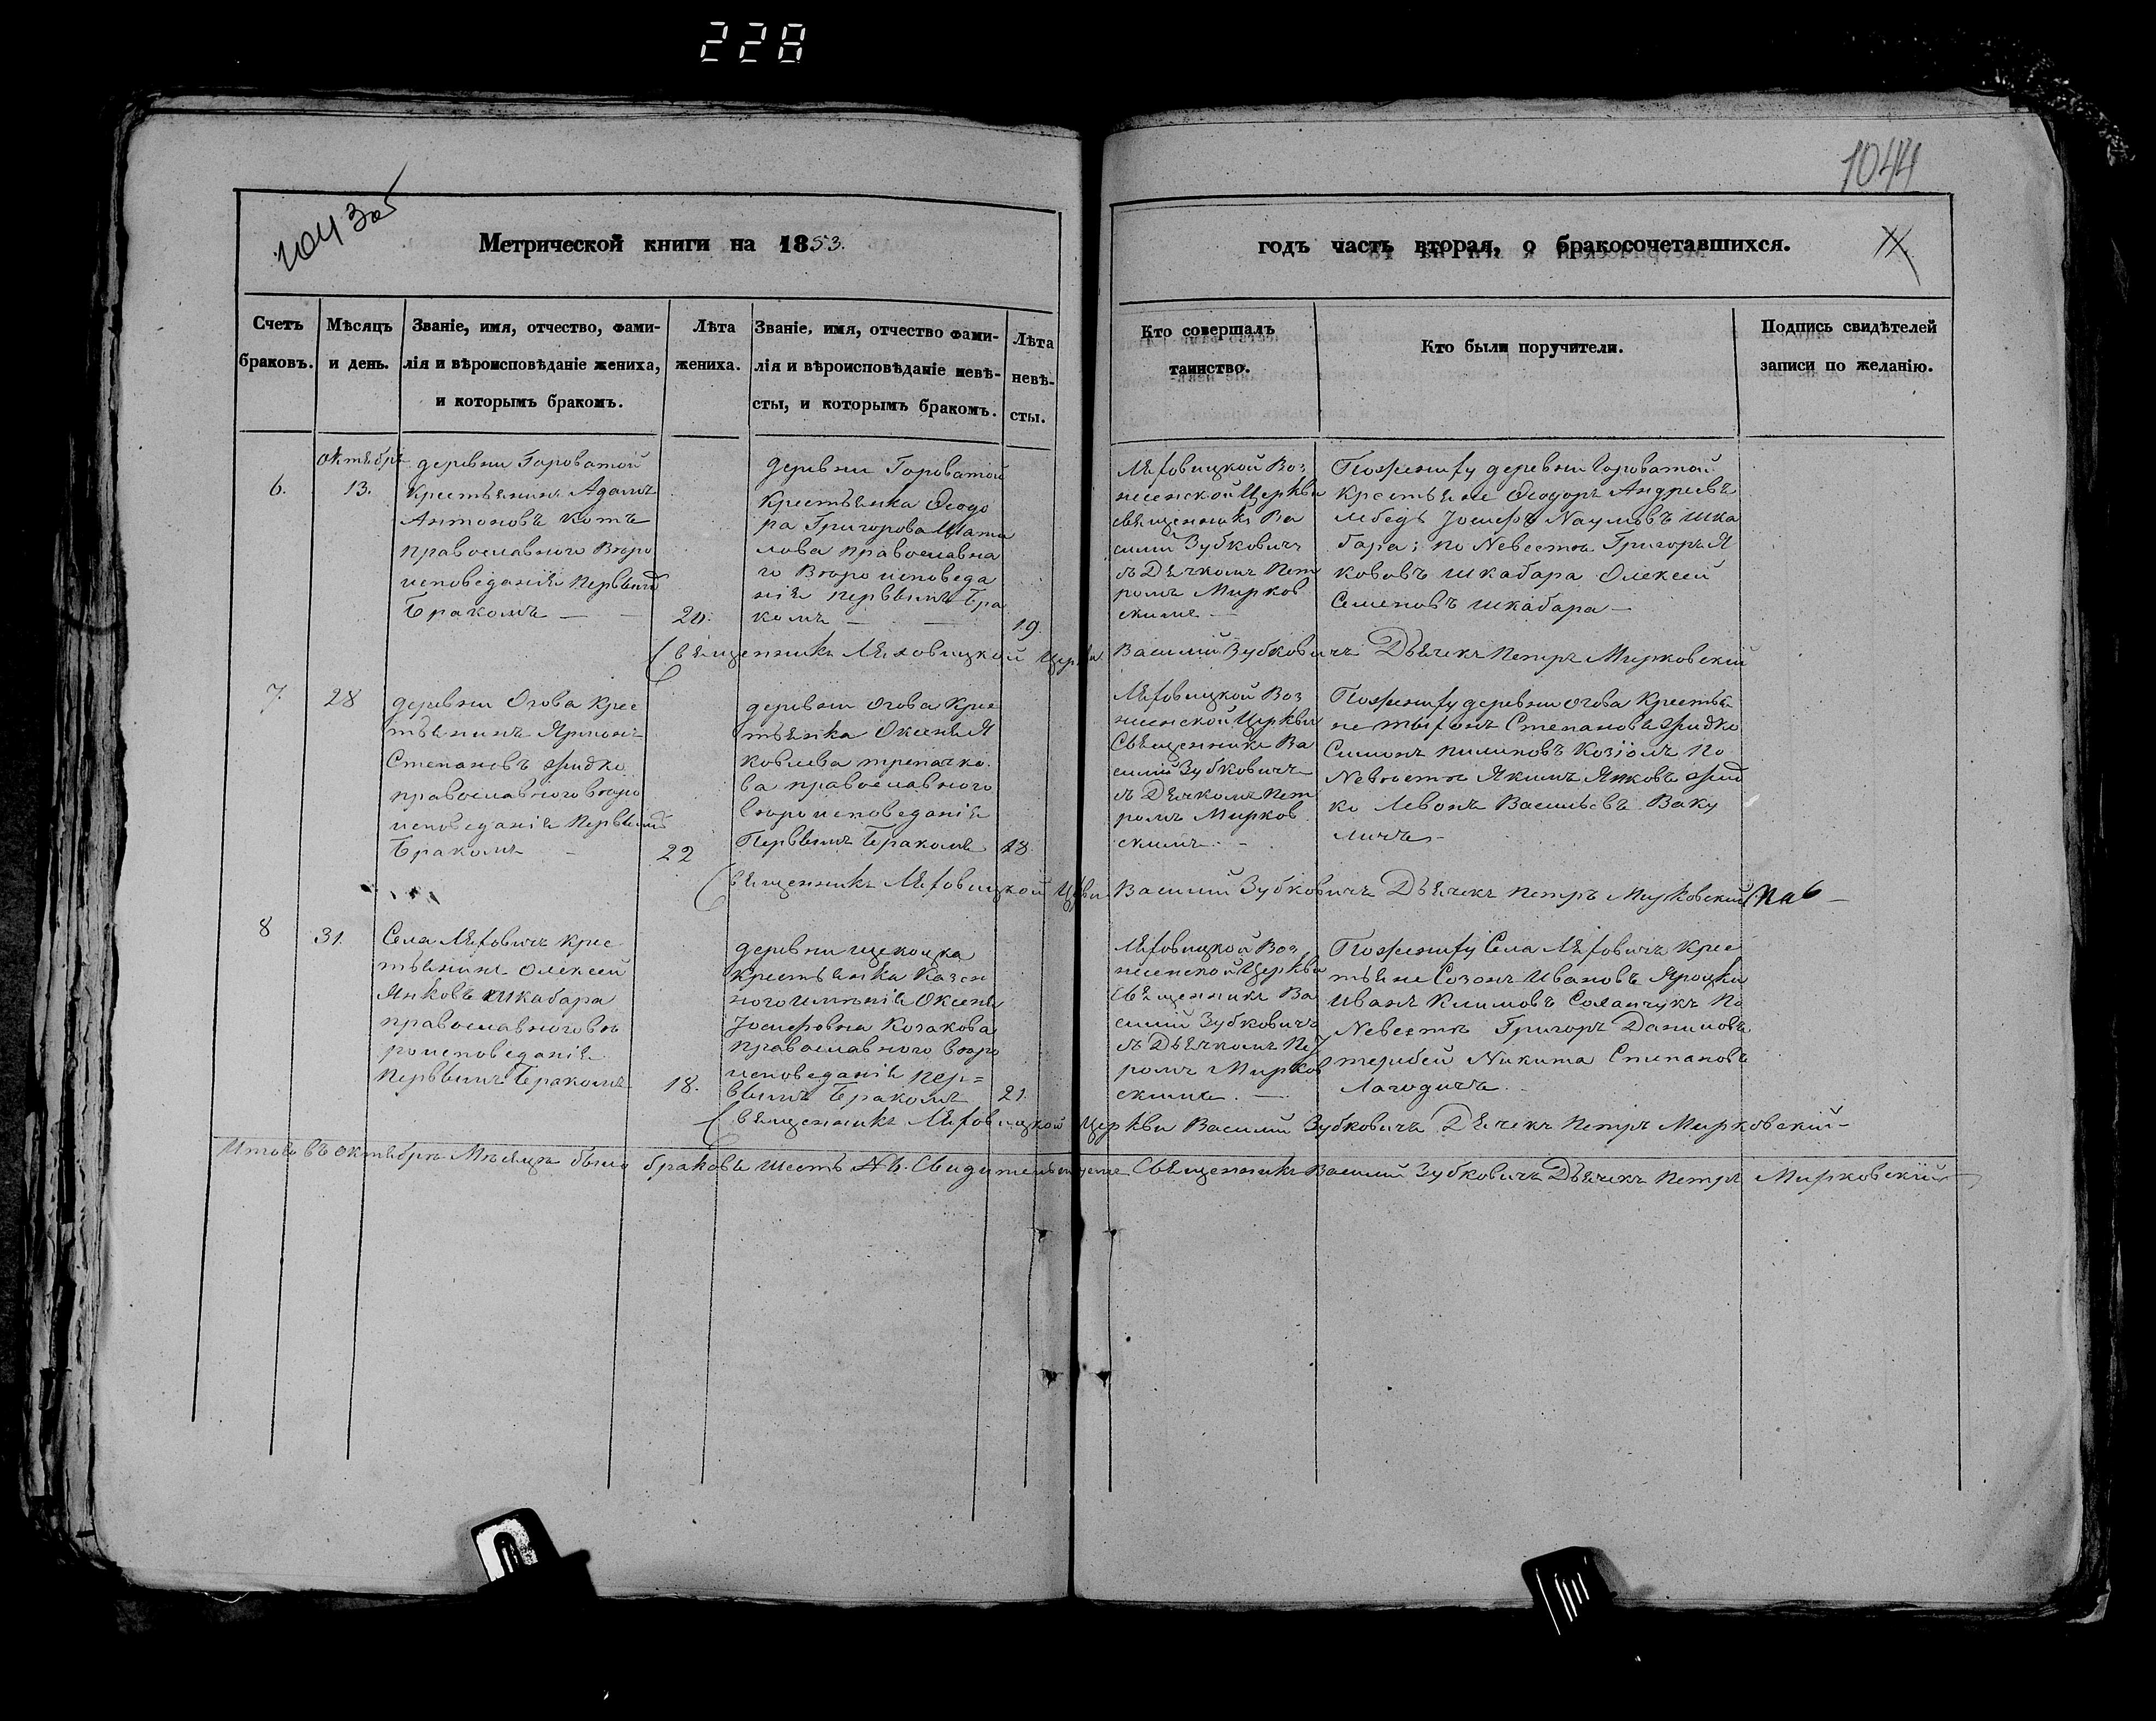 228
1044
1043об
Метрической книги на 1853.
годъ часть вторая, о бракосочетавшихся.
Счетъ
браковъ.
Мѣсяцъ
и день.
Званіе, имя, отчество, фами-
лія и вѣроисповѣданіе жениха,
и которымъ бракомъ.
Лѣта
жениха.
Званіе, имя, отчество фами-
лія и вѣроисповѣданіе невѣ-
сты, и которымъ бракомъ.
Лѣта
невѣ-
сты.
Кто совершалъ
таинство.
Кто были поручители.
Подпись свидѣтелей
записи по желанію.
6.
Октябрь
13.
деревни Гороватой
крестьянинъ Адамъ
Антоновъ котъ
православного вѣро
исповеданія первымъ
бракомъ —
20.
деревни Гороватой
крестьянка Ѳеодо
ра Григорова
лова православна
го вѣро исповеда
нія первымъ бра
комъ —
19.
Ляховицкой Воз
несенской Церкви
священникъ Ва
силий Зубковичъ
съ Дьячкомъ Пет
ромъ Мирков
скимъ —
По жениху деревни Гороватой
крестьяне Ѳеодоръ Андреевъ
лебедь Иосифъ Наумовъ шка
бара; по Невестѣ Григоръ Я
кововъ шкабара Олексей
Семеновъ шкабара —
Священникъ Ляховицкой Церкви Василий Зубковичъ Дьячекъ Петръ Мирковский
7.
28
деревни Огова крес
тьянинъ
Степановъ жидко
православного вѣро
исповеданія первымъ
бракомъ —
22
деревни Огова крес
тьянка Оксеня Я
ковлева трепачко
ва православного
вѣроисповеданія
Первымъ бракомъ
18.
Ляховицкой Воз
несенской Церкви
Священникъ Ва
силий Зубковичъ
съ Дьячкомъ Пет
ромъ Мирков
скимъ. —
По жениху деревни огова крестья
не Степановъ жидко
Симонъ пилиповъ козіолъ По
Невестѣ Якимъ Янковъ жид
ко Левонъ Васильевъ Ваку
личъ —
Священникъ Ляховицкой Церкви Василий Зубковичъ Дьячекъ Петръ Мирковский
8
31.
Села Ляховичъ крес
тьянинъ Олексей
Янковъ шкабара
православного вѣ
роисповеданія
первымъ бракомъ
18.
деревни щекоцка
крестьянка Казен
ного имѣнія Оксеня
Иосифовна Козакова
православного вѣро
исповеданія пер=
вымъ бракомъ
21.
Ляховицкой Воз
несенской Церкви
Священникъ Ва
силий Зубковичъ
съ Дьячкомъ Пет
ромъ Мирков
скимъ. —
По жениху Села Ляховичъ крес
тьяне Созонъ Ивановъ Яроцки
Иванъ Климовъ Соланчукъ По
Невестѣ Григоръ Даниловъ
Никита Степановъ
Лагодичъ.
Священникъ Ляховицкой Церкви Василий Зубковичъ Дьячекъ Петръ Мирковский —
Итого въ октябрѣ Мѣсяцѣ было браковъ шесть №6. Священникъ Василий Зубковичъ Дьячекъ Петръ Мирковский